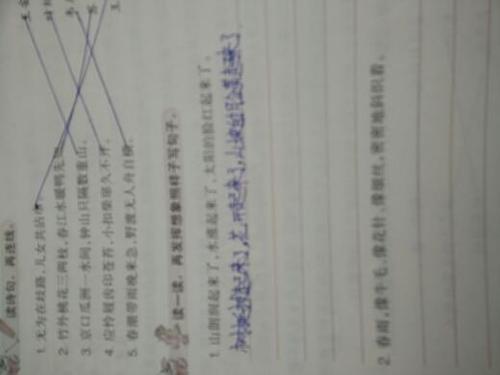 读诗句,再连线。
1. 无为在歧路,儿女共沾巾。
2. 竹外桃花三两枝,春江水暖鸭先知。
3. 京口瓜洲一水间,钟山只隔数重山。
4. 应怜屐齿印苍苔,小扣柴扉久不开。
5. 春潮带雨晚来急,野渡无人舟自横。
读一读,再发挥想象照样子写句子。
1. 山朗润起来了,水涨起来了,太阳的脸红起来了。
起来了,花开起来了,
2. 春雨,像牛毛,像花针,像细丝,密密地斜织着。